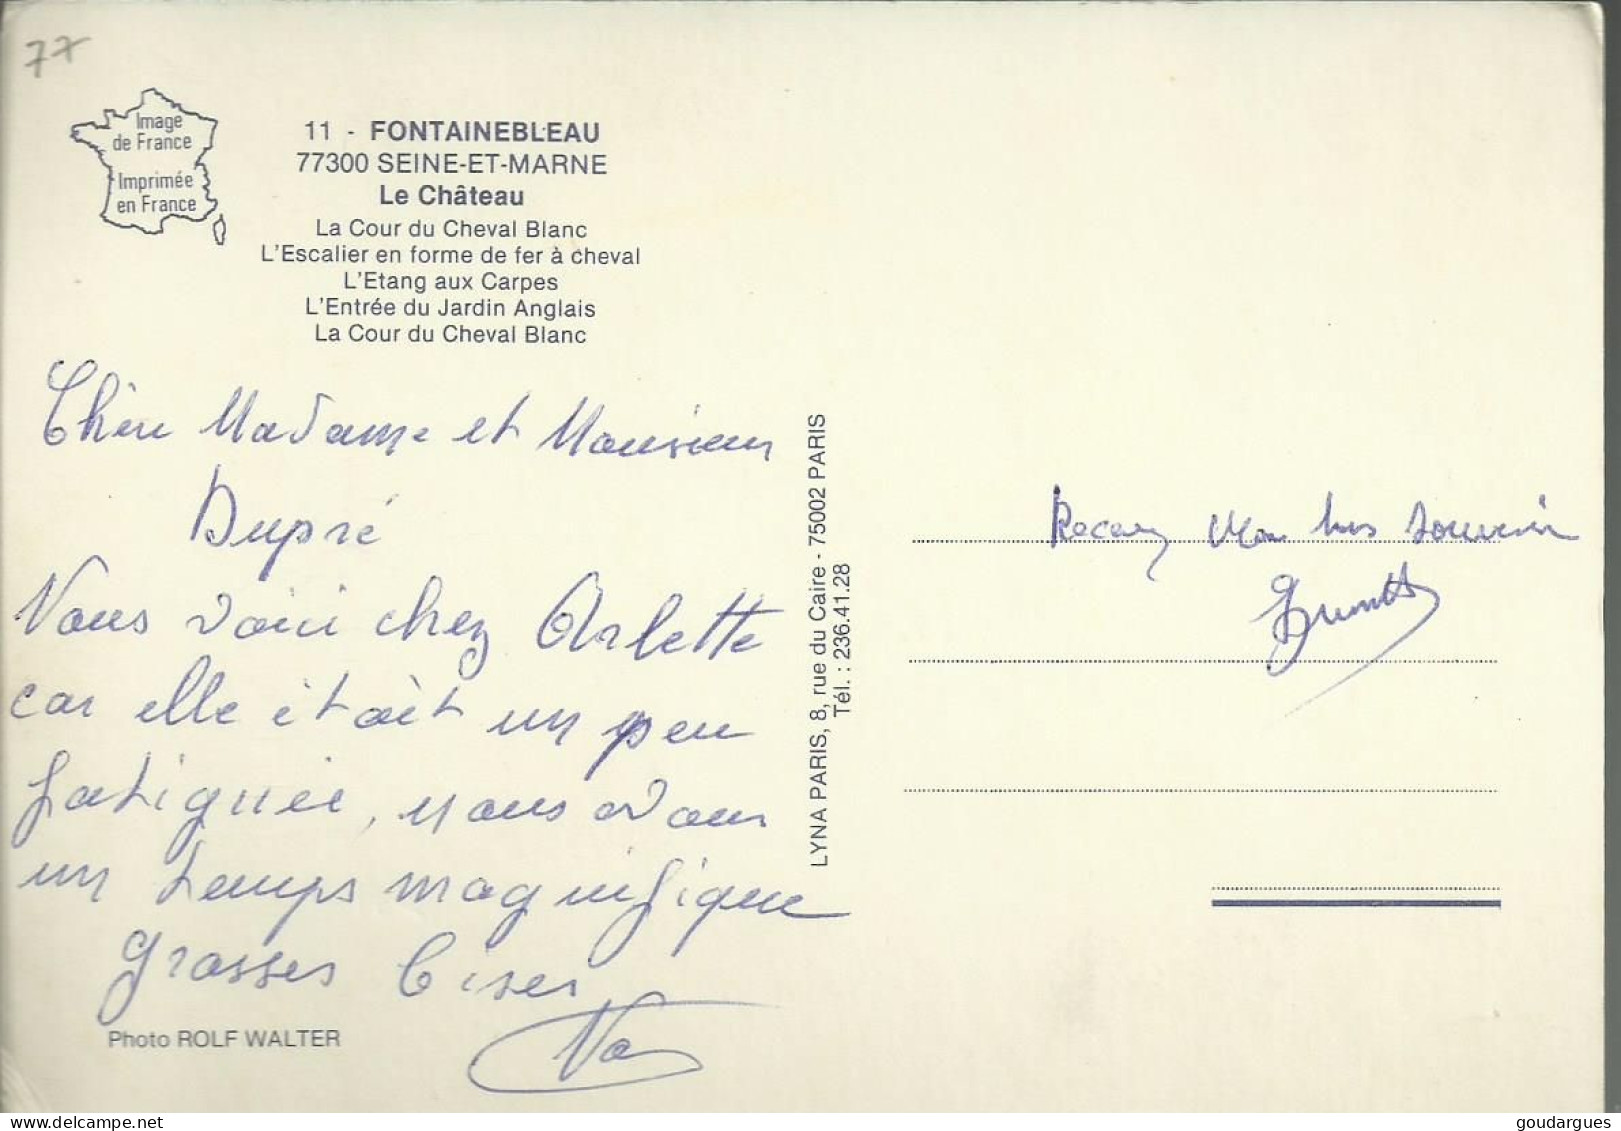 77
Image
de France
Imprimée
en France
11 - FONTAINEBLEAU
77300 SEINE-ET-MARNE
Le Château
La Cour du Cheval Blanc
L'Escalier en forme de fer à cheval
L'Etang aux Carpes
L'Entrée du Jardin Anglais
La Cour du Cheval Blanc
Chère Madame et Monsieur
Dupré
Nous voici chez Arlette
car elle était un peu
fatiguée, nous avons
un temps magnifique
grosses bises
Photo ROLF WALTER
LYNA PARIS, 8, rue du Caire - 75002 PARIS
Tél. : 236.41.28
Recevez mon bons souvenir
goudargues @ delcampe.net